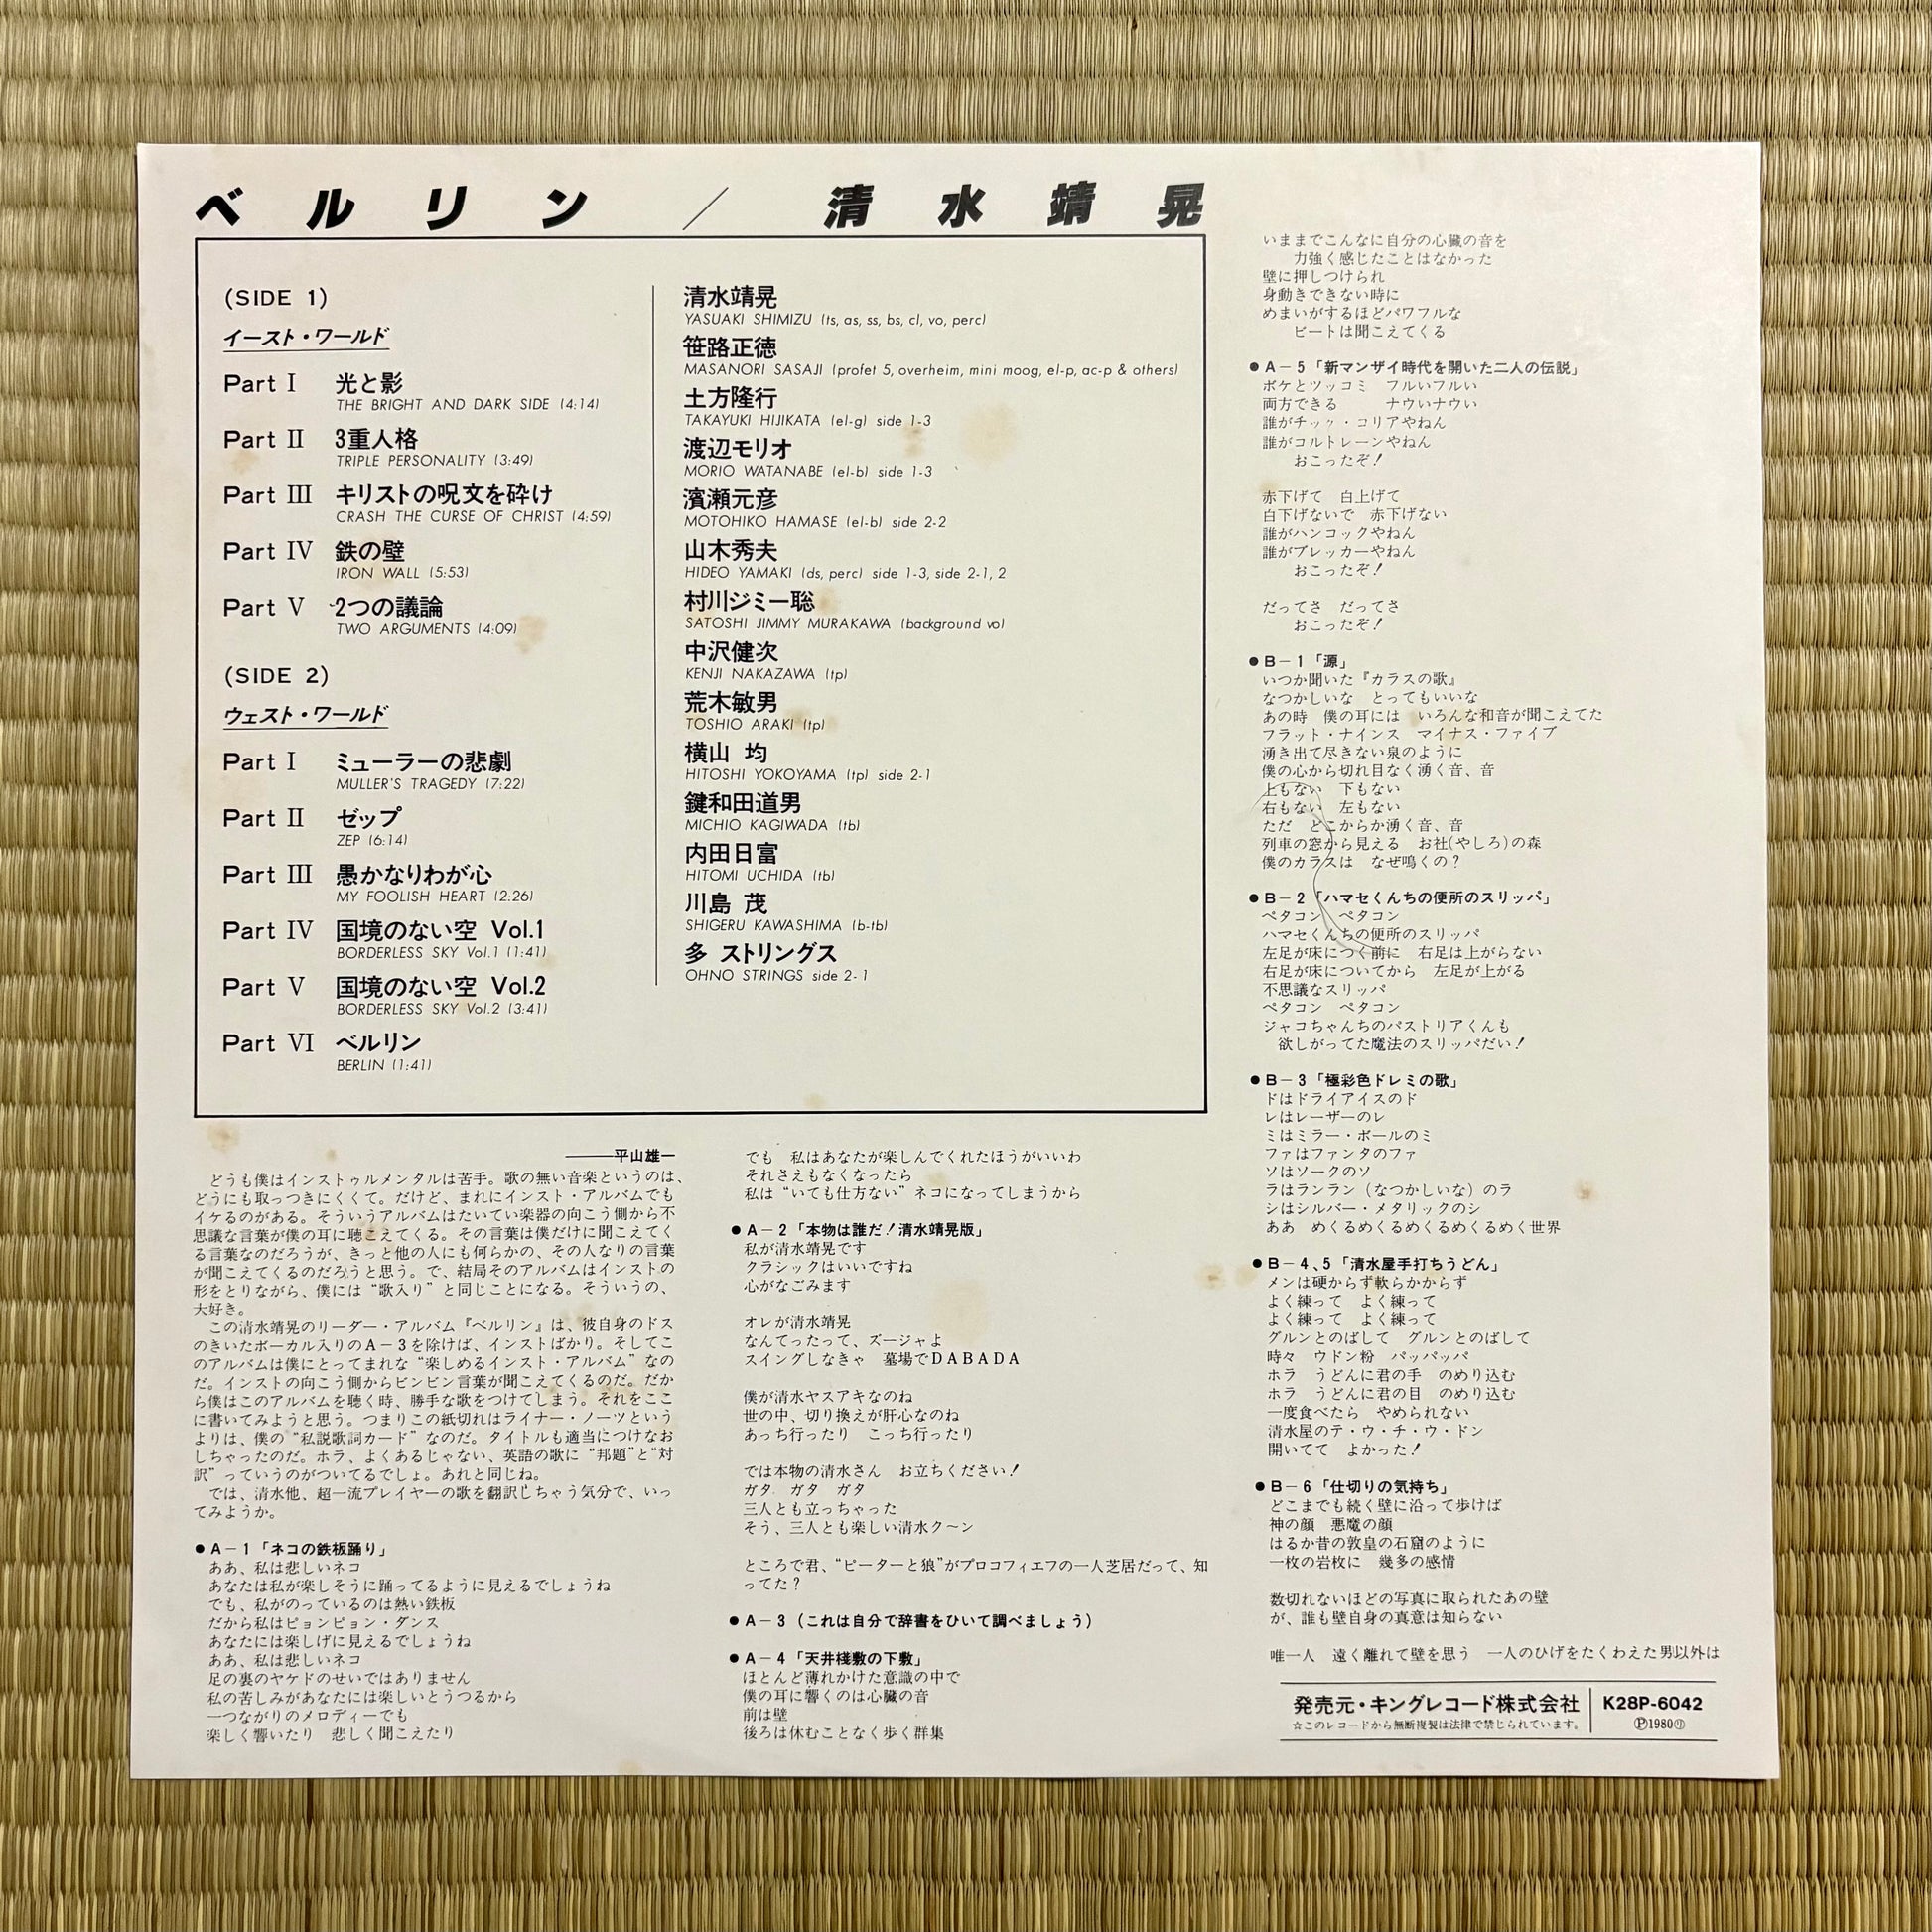 ベルリン／清水靖晃
(SIDE 1)
イースト・ワールド
Part I 光と影
THE BRIGHT AND DARK SIDE (4:14)
Part II 3重人格
TRIPLE PERSONALITY (3:49)
Part III キリストの呪文を砕け
CRASH THE CURSE OF CHRIST (4:59)
Part IV 鉄の壁
IRON WALL (5:53)
Part V 2つの議論
TWO ARGUMENTS (4:09)
(SIDE 2)
ウェスト・ワールド
Part I ミューラーの悲劇
MULLER'S TRAGEDY (7:22)
Part II ゼップ
ZEP (6:14)
Part III 愚かなりわが心
MY FOOLISH HEART (2:26)
Part IV 国境のない空 Vol.1
BORDERLESS SKY Vol.1 (1:41)
Part V 国境のない空 Vol.2
BORDERLESS SKY Vol.2 (3:41)
Part VI ベルリン
BERLIN (1:41)
清水靖晃
YASUAKI SHIMIZU (ts, as, ss, bs, cl, vo, perc)
笹路正徳
MASANORI SASAJI (profet 5, overheim, mini moog, el-p, ac-p & others)
土方隆行
TAKAYUKI HIJIKATA (el-g) side 1-3
渡辺モリオ
MORIO WATANABE (el-b) side 1-3
濱瀬元彦
MOTOHIKO HAMASE (el-b) side 2-2
山木秀夫
HIDEO YAMAKI (ds, perc) side 1-3, side 2-1, 2
村川ジミー聡
SATOSHI JIMMY MURAKAWA (background vo)
中沢健次
KENJI NAKAZAWA (tp)
荒木敏男
TOSHIO ARAKI (tp)
横山 均
HITOSHI YOKOYAMA (tp) side 2-1
鍵和田道男
MICHIO KAGIWADA (tb)
内田日富
HITOMI UCHIDA (tb)
川島 茂
SHIGERU KAWASHIMA (b-tb)
多 ストリングス
OHNO STRINGS side 2-1
――平山雄一
どうも僕はインストゥルメンタルは苦手。歌の無い音楽というのは、
どうにも取っつきにくくて。だけど、まれにインスト・アルバムでも
イケるのがある。そういうアルバムはたいてい楽器の向こう側から不
思議な言葉が僕の耳に聴こえてくる。その言葉は僕だけに聞こえてく
る言葉なのだろうが、きっと他の人にも何らかの、その人なりの言葉
が聞こえてくるのだろうと思う。で、結局そのアルバムはインストの
形をとりながら、僕には“歌入り”と同じことになる。そういうの、
大好き。
この清水靖晃のリーダー・アルバム『ベルリン』は、彼自身のドス
のきいたボーカル入りのA－3を除けば、インストばかり。そしてこ
のアルバムは僕にとってまれな“楽しめるインスト・アルバム”なの
だ。インストの向こう側からビンビン言葉が聞こえてくるのだ。だか
ら僕はこのアルバムを聴く時、勝手な歌をつけてしまう。それをここ
に書いてみようと思う。つまりこの紙切れはライナー・ノーツという
よりは、僕の“私説歌詞カード”なのだ。タイトルも適当につけなお
しちゃったのだ。ホラ、よくあるじゃない、英語の歌に“邦題”と“対
訳”っていうのがついてるでしょ。あれと同じね。
では、清水他、超一流プレイヤーの歌を翻訳しちゃう気分で、いっ
てみようか。
●A－1「ネコの鉄板踊り」
ああ、私は悲しいネコ
あなたは私が楽しそうに踊ってるように見えるでしょうね
でも、私がのっているのは熱い鉄板
だから私はピョンピョン・ダンス
あなたには楽しげに見えるでしょうね
ああ、私は悲しいネコ
足の裏のヤケドのせいではありません
私の苦しみがあなたには楽しいとうつるから
一つながりのメロディーでも
楽しく響いたり 悲しく聞こえたり
でも 私はあなたが楽しんでくれたほうがいいわ
それさえもなくなったら
私は“いても仕方ない”ネコになってしまうから
●A－2「本物は誰だ！清水靖晃版」
私が清水靖晃です
クラシックはいいですね
心がなごみます
オレが清水靖晃
なんてったって、ズージャよ
スイングしなきゃ 墓場でDABADA
僕が清水ヤスアキなのね
世の中、切り換えが肝心なのね
あっち行ったり こっち行ったり
では本物の清水さん お立ちください！
ガタ ガタ ガタ
三人とも立っちゃった
そう、三人とも楽しい清水ク～ン
ところで君、“ピーターと狼”がプロコフィエフの一人芝居だって、知
ってた？
●A－3（これは自分で辞書をひいて調べましょう）
●A－4「天井桟敷の下敷」
ほとんど薄れかけた意識の中で
僕の耳に響くのは心臓の音
前は壁
後ろは休むことなく歩く群集
いままでこんなに自分の心臓の音を
力強く感じたことはなかった
壁に押しつけられ
身動きできない時に
めまいがするほどパワフルな
ビートは聞こえてくる
●A－5「新マンザイ時代を開いた二人の伝説」
ボケとツッコミ フルいフルい
両方できる ナウいナウい
誰がチック・コリアやねん
誰がコルトレーンやねん
おこったぞ！
赤下げて 白上げて
白下げないで 赤下げない
誰がハンコックやねん
誰がブレッカーやねん
おこったぞ！
だってさ だってさ
おこったぞ！
●B－1「源」
いつか聞いた『カラスの歌』
なつかしいな とってもいいな
あの時 僕の耳には いろんな和音が聞こえてた
フラット・ナインス マイナス・ファイブ
湧き出て尽きない泉のように
僕の心から切れ目なく湧く音、音
上もない 下もない
右もない 左もない
ただ どこからか湧く音、音
列車の窓から見える お社(やしろ)の森
僕のカラスは なぜ鳴くの？
●B－2「ハマセくんちの便所のスリッパ」
ペタコン ペタコン
ハマセくんちの便所のスリッパ
左足が床につく前に 右足は上がらない
右足が床についてから 左足が上がる
不思議なスリッパ
ペタコン ペタコン
ジャコちゃんちのパストリアくんも
欲しがってた魔法のスリッパだい！
●B－3「極彩色ドレミの歌」
ドはドライアイスのド
レはレーザーのレ
ミはミラー・ボールのミ
ファはファンタのファ
ソはソークのソ
ラはランラン（なつかしいな）のラ
シはシルバー・メタリックのシ
ああ めくるめくるめくるめくるめく世界
●B－4、5「清水屋手打ちうどん」
メンは硬からず軟らかからず
よく練って よく練って
よく練って よく練って
グルンとのばして グルンとのばして
時々 ウドン粉 パッパッパ
ホラ うどんに君の手 のめり込む
ホラ うどんに君の目 のめり込む
一度食べたら やめられない
清水屋のテ・ウ・チ・ウ・ドン
開いてて よかった！
●B－6「仕切りの気持ち」
どこまでも続く壁に沿って歩けば
神の顔 悪魔の顔
はるか昔の敦皇の石窟のように
一枚の岩枚に 幾多の感情
数切れないほどの写真に取られたあの壁
が、誰も壁自身の真意は知らない
唯一人 遠く離れて壁を思う 一人のひげをたくわえた男以外は
発売元・キングレコード株式会社 K28P-6042
☆このレコードから無断複製は法律で禁じられています。 Ⓟ1980